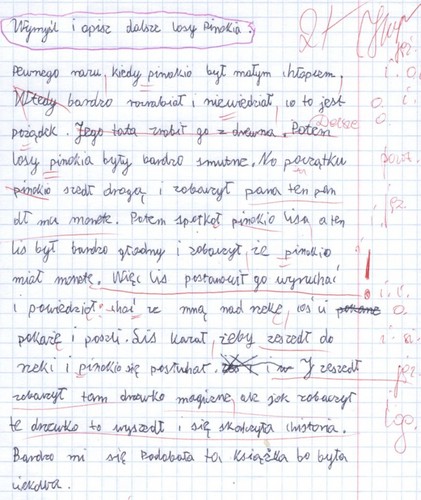 Wymyśl i opisz dalsze losy Pinokia. 2+
Pewnego razu, kiedy pinokio był małym chłopcem,
Wtedy bardzo rozrabiał i niewiedział, co to jest
pożądek. Jego tata zrobił go z drewna. Potem
Dalsze
losy pinokia były bardzo smutne. Na początku
pinokio szedł drogą i zobaczył pana ten pan
dł mu monete. Potem spotkał pinokio lisa a ten
lis był bardzo głodny i zobaczył że pinokio
miał monetę. Więc lis postanowił go wyruchać
i powiedział: chać ze mną nad rzekę, coś ci
pokażę i poszli. Lis kazał, żeby zeszedł do
rzeki i pinokio się posłuchał. i J zeszedł
zobaczył tam drzewko magiczne, ale jak zobaczył
te drzewko to wyszedł i się skończyła chistoria.
Bardzo mi się podobała ta książka bo była
ciekawa.